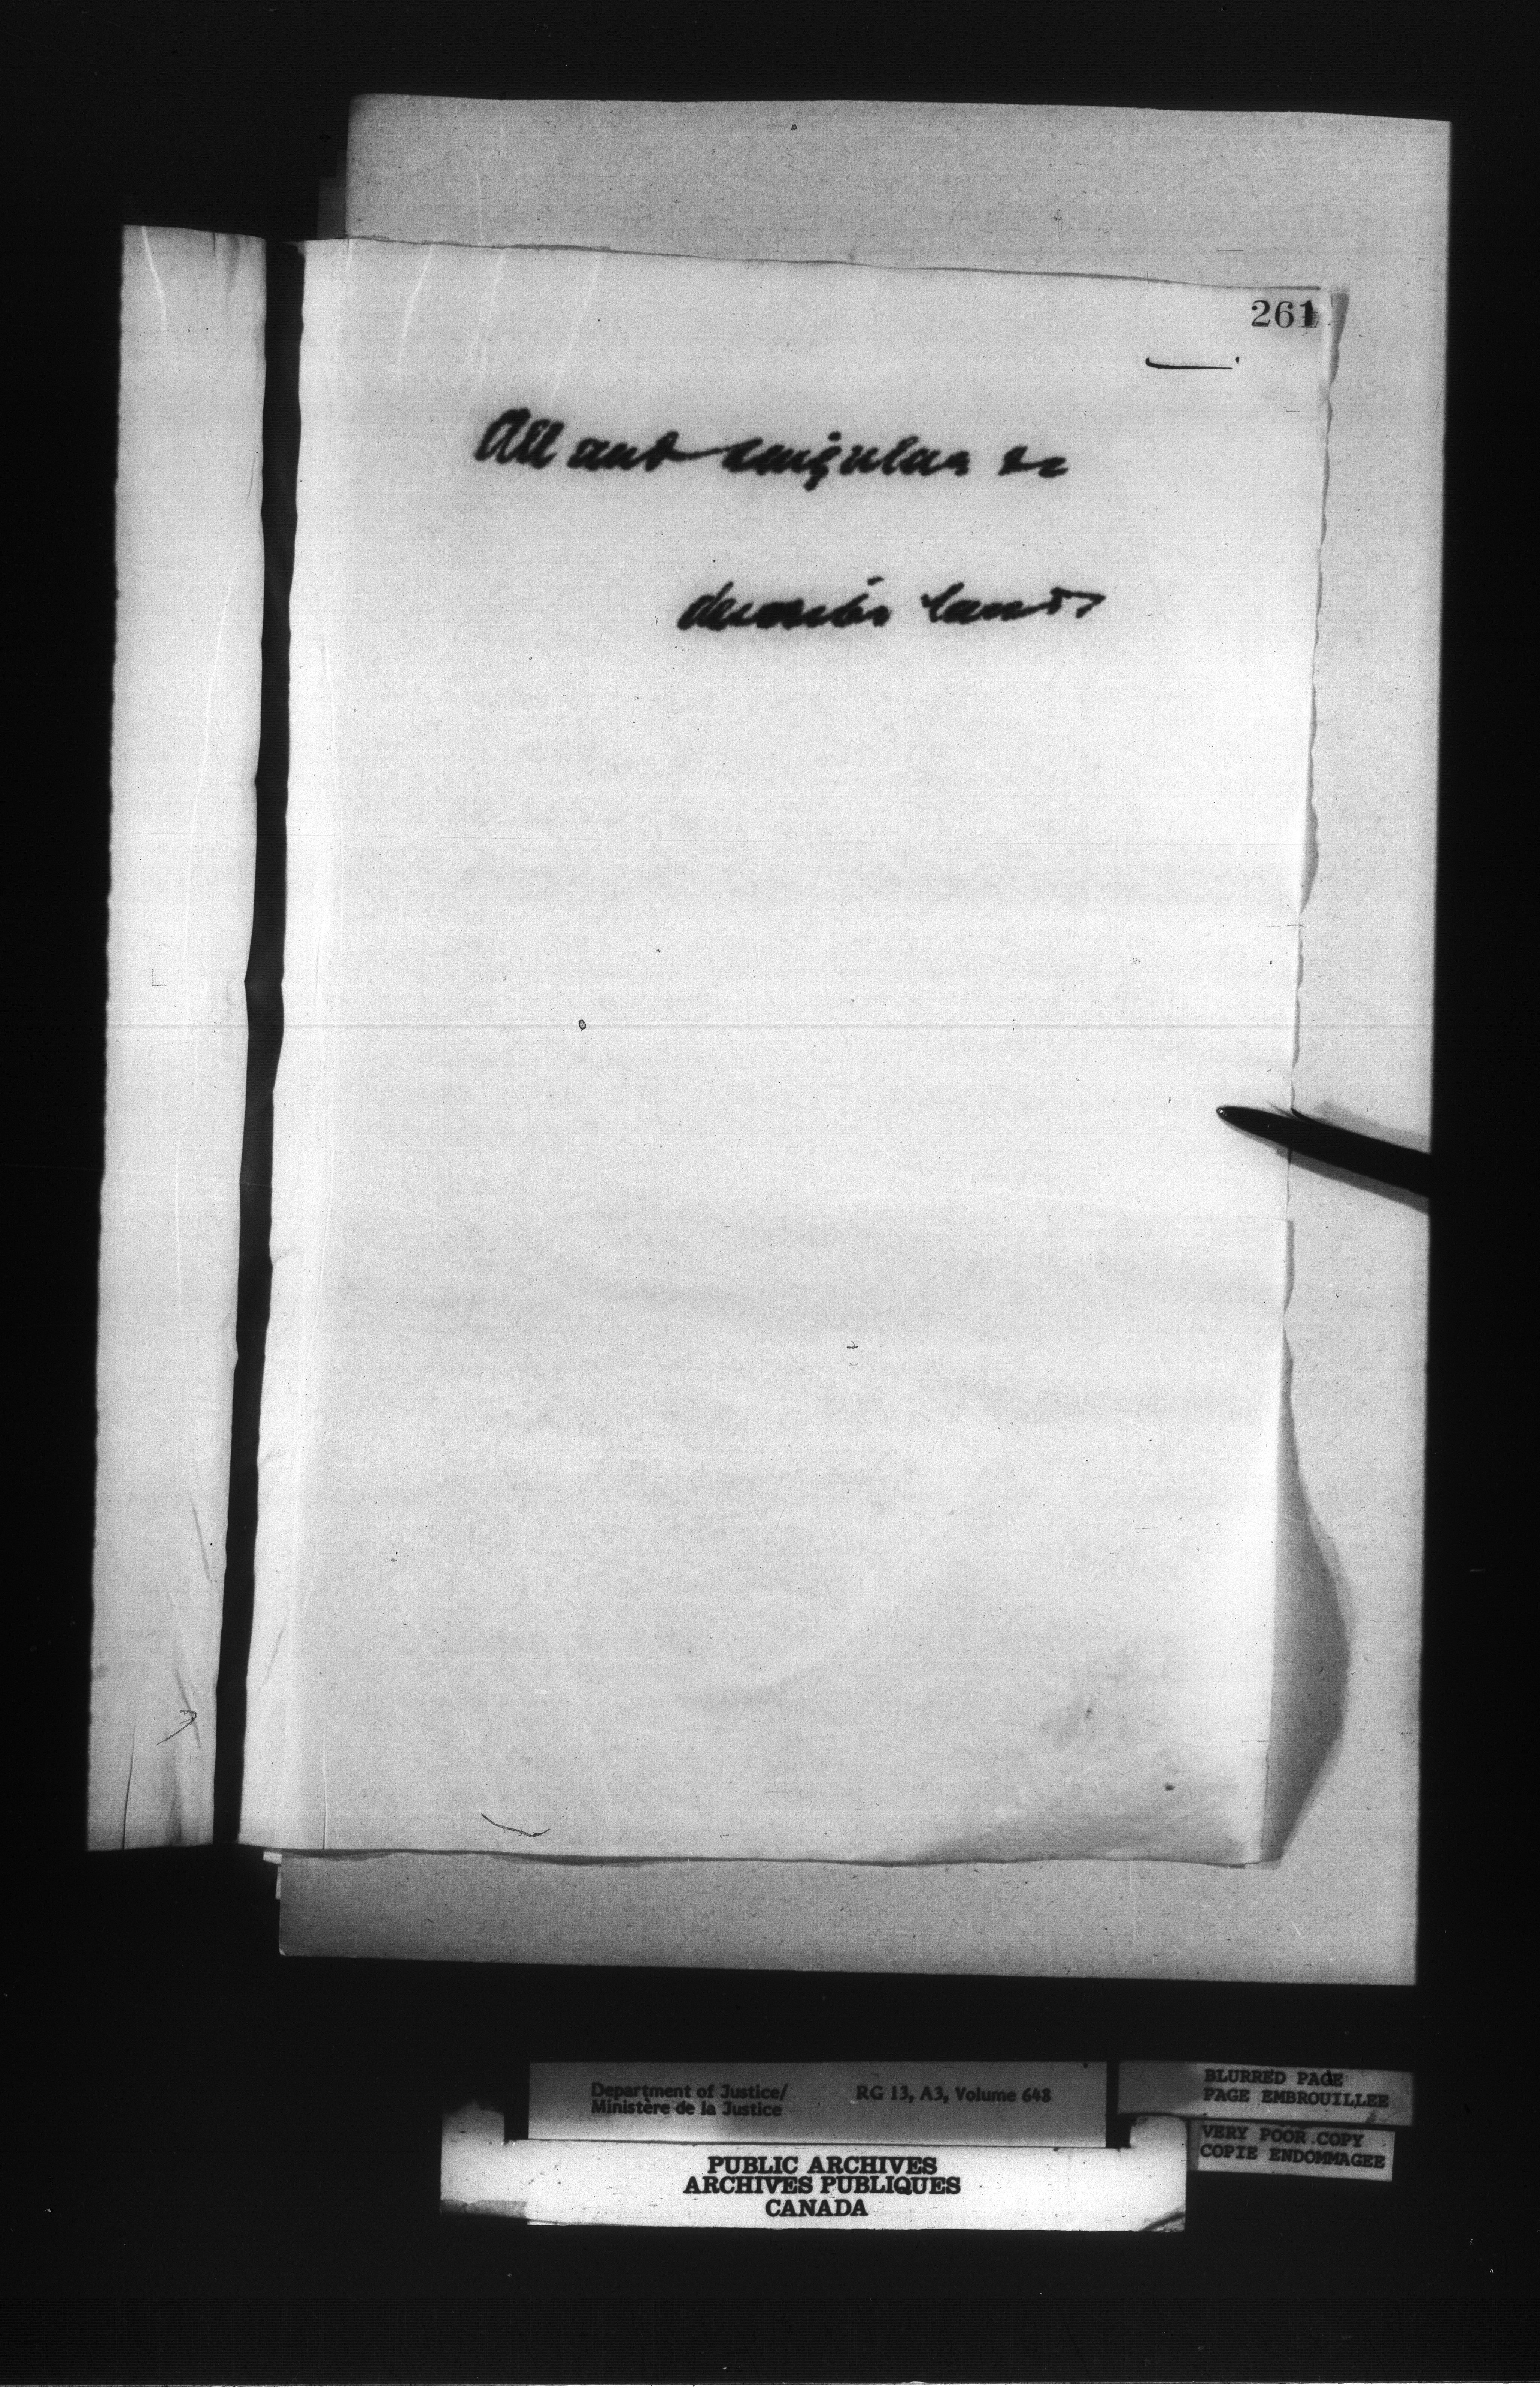 261
All and singular &c
describe lands
Department of Justice/ RG 13, A3, Volume 648
Ministère de la Justice
BLURRED PAGE
PAGE EMBROUILLEE
VERY POOR COPY
COPIE ENDOMMAGEE
PUBLIC ARCHIVES
ARCHIVES PUBLIQUES
CANADA